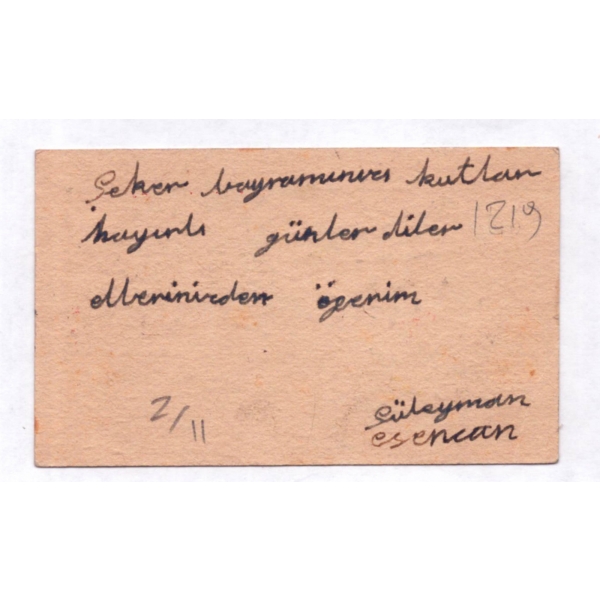 Şeker bayramınızı kutlar
hayırlı günler diler
ellerinizden öperim
2/11
Süleyman
esencan